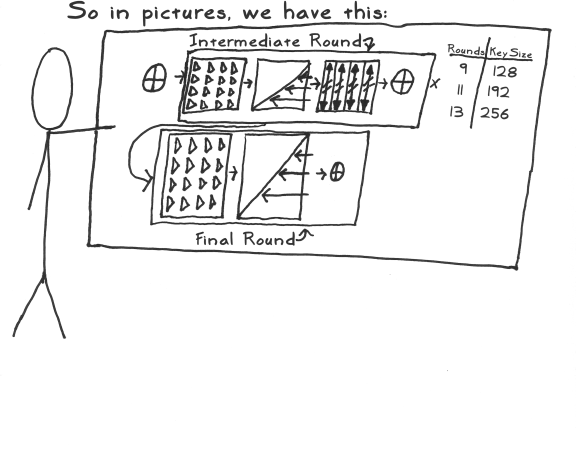 So in pictures, we have this:
Intermediate Round
Rounds Key Size
9 128
x 11 192
13 256
Final Round